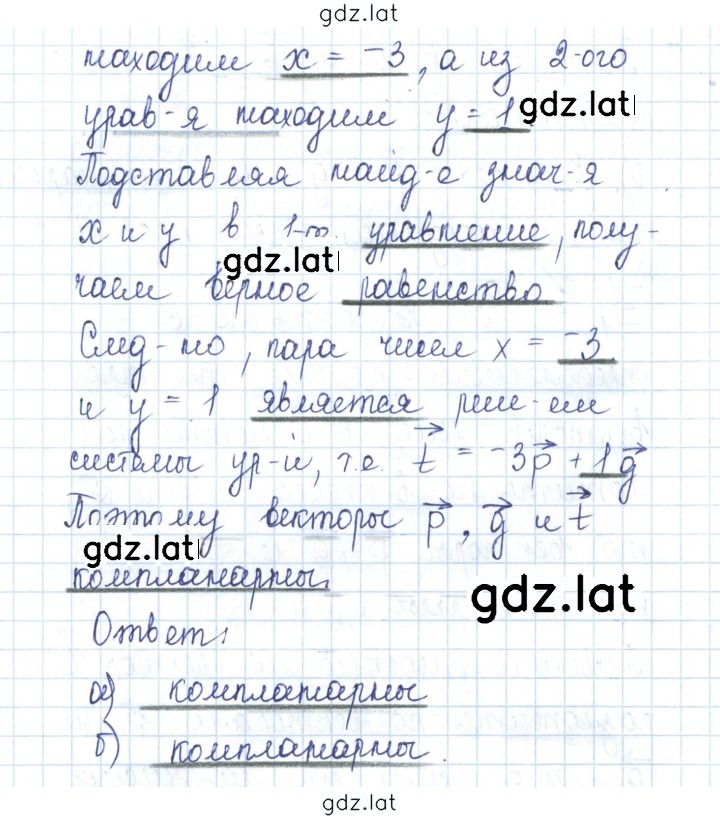 gdz.lat
находим x = -3, а из 2-ого
урав-я находим y = 1 gdz.lat
Подставляя найд-е знач-я
x и y в 1-m уравнение, полу-
gdz.lat
чаем верное равенство
След-но, пара чисел x = -3
и y = 1 является реш-ем
системы ур-й, т.е. t = -3p + 1g
Поэтому векторы p, g и t
gdz.lat
компланарны.
gdz.lat
Ответ:
а) компланарны
б) компланарны.
gdz.lat